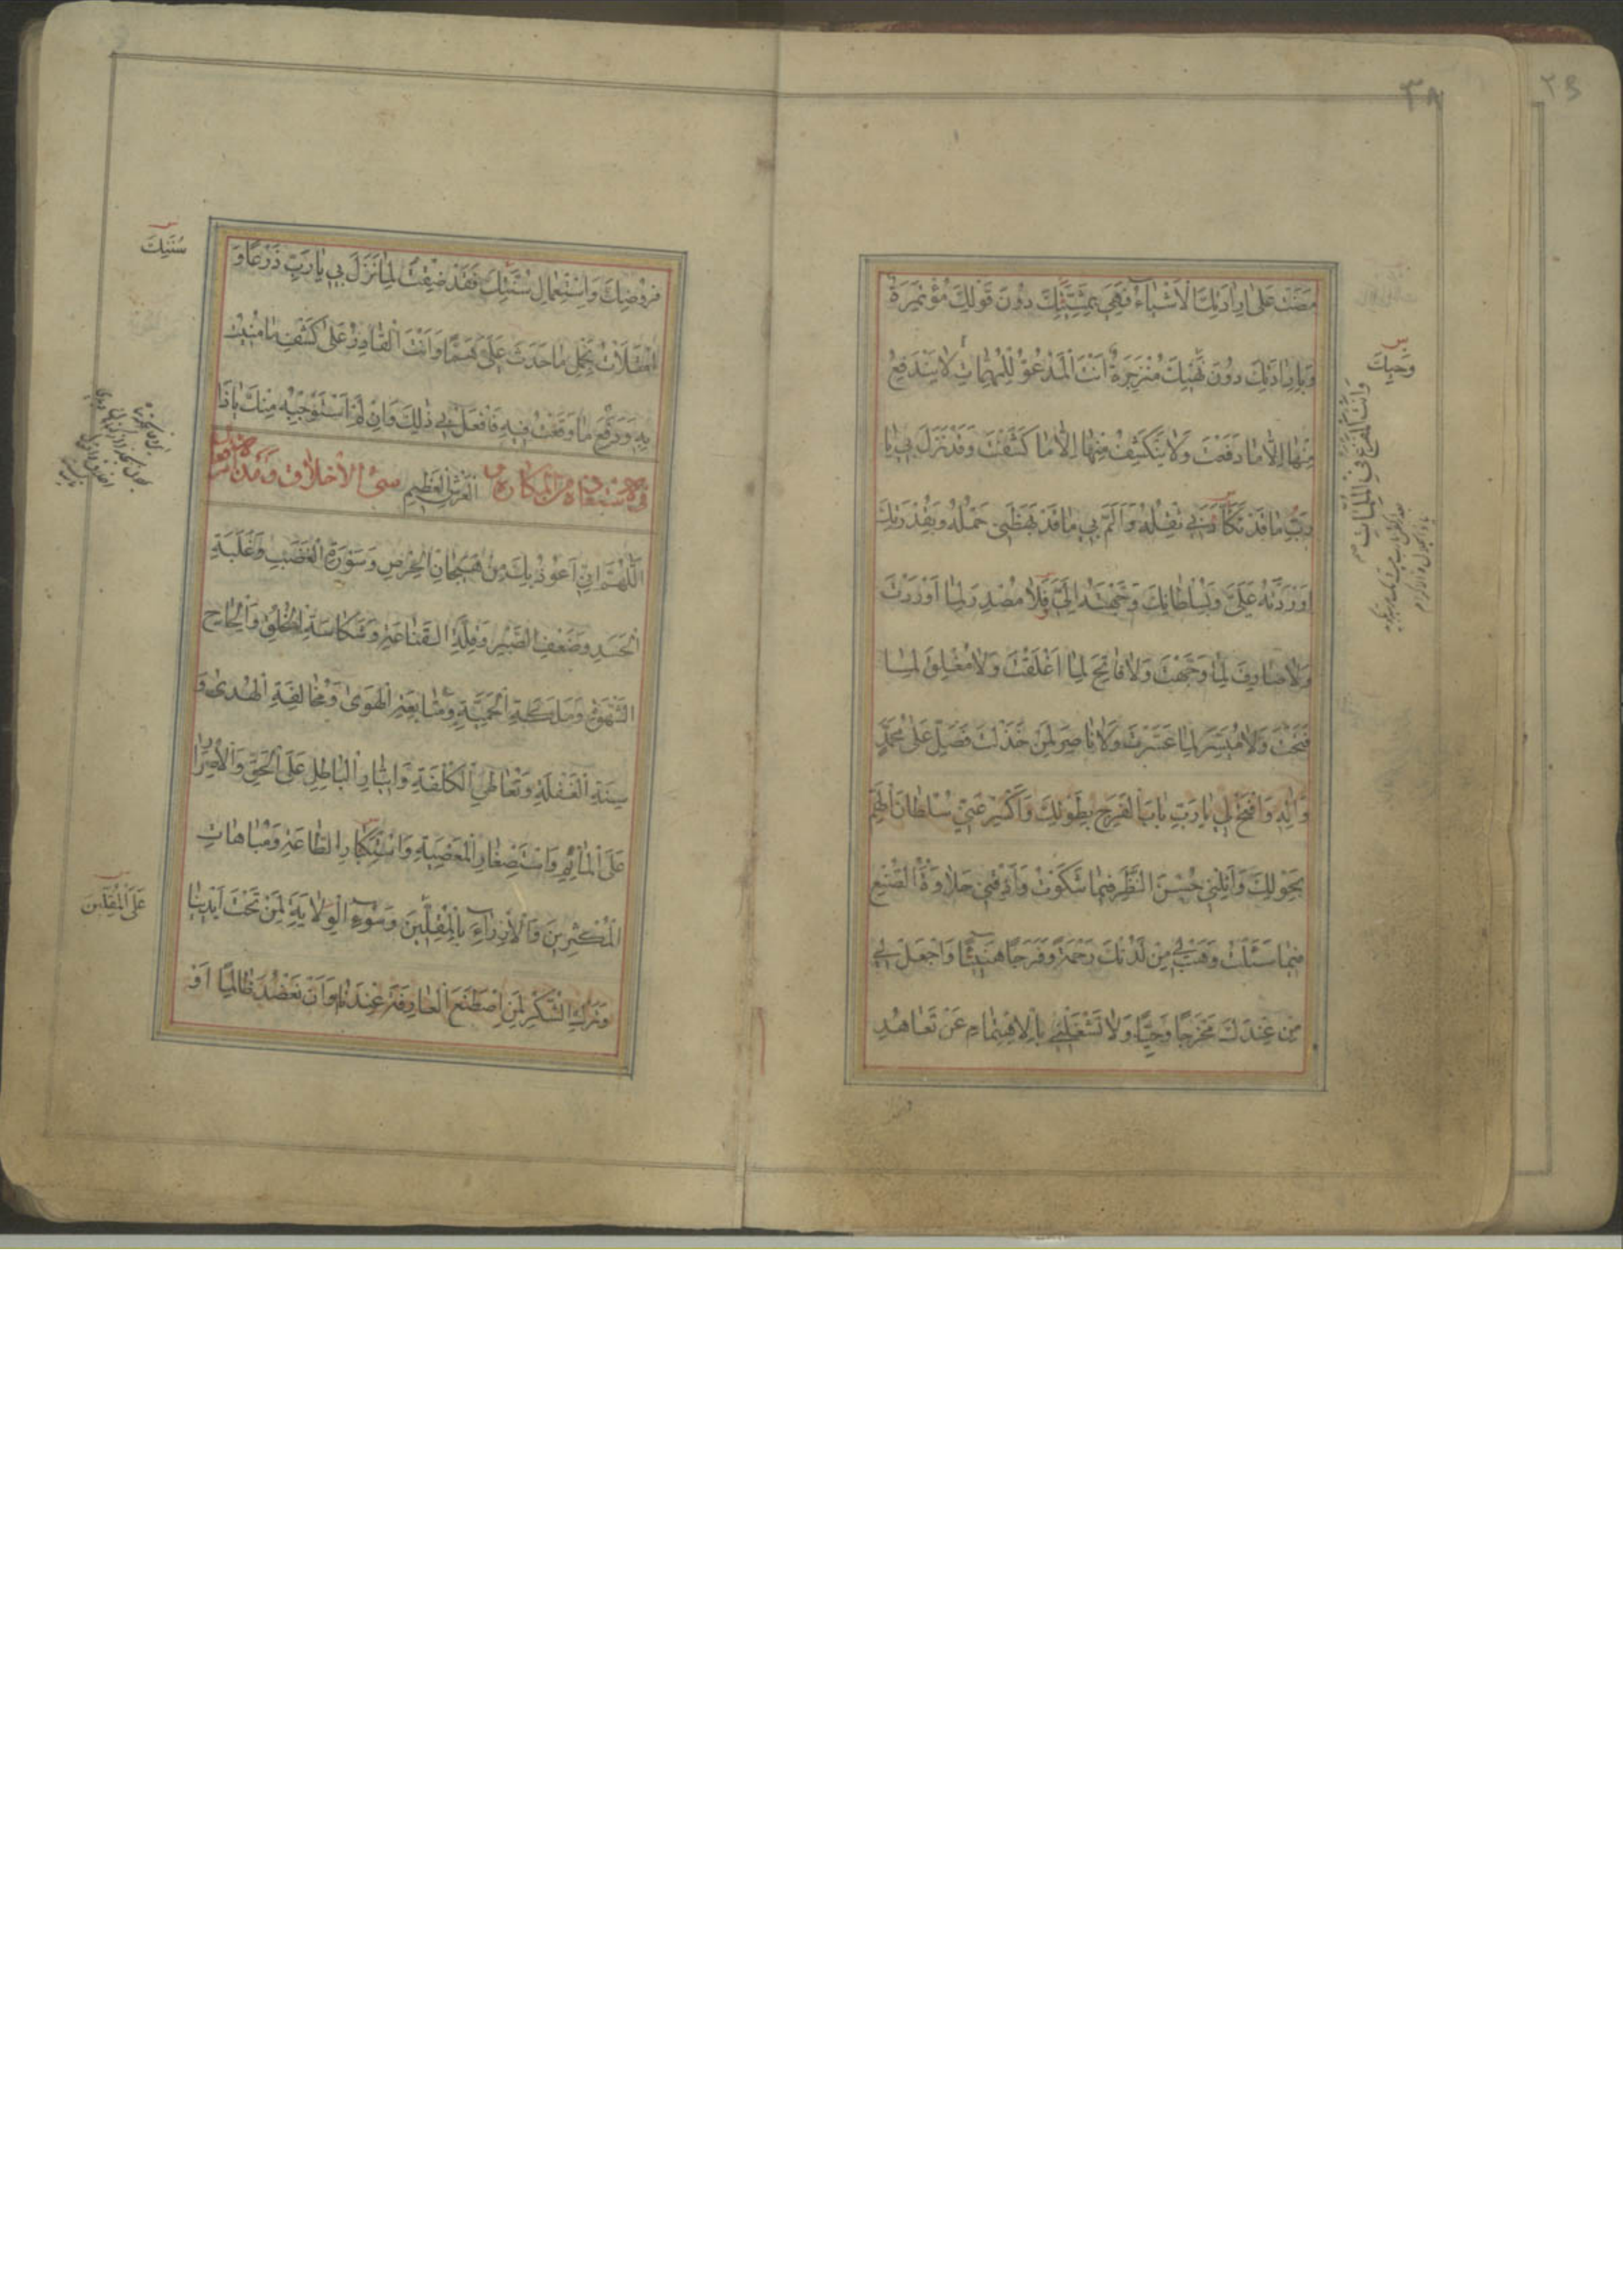 ٣٨
مَضَتْ عَلىٰ اِرادَتِكَ الْاَشْياءُ فَهِيَ بِمَشِيَّتِكَ دُونَ قَوْلِكَ مُؤْتَمِرَةٌ
وَبِاِرادَتِكَ دُونَ نَهْيِكَ مُنْزَجِرَةٌ اَنْتَ الْمَدْعُوُّ لِلْمُهِمّاتِ لايَنْدَفِعُ
مِنْها اِلّا ما دَفَعْتَ وَلا يَنْكَشِفُ مِنْها اِلّا ما كَشَفْتَ وَقَدْ نَزَلَ بي يا
رَبِّ ما قَدْ تَكَأَّدَني ثِقْلُهُ وَاَلَمَّ بي ما قَدْ بَهَظَني حَمْلُهُ وَبِقُدْرَتِكَ
اَوْرَدْتَهُ عَلَيَّ وَبِسُلْطانِكَ وَجَّهْتَهُ اِلَيَّ فَلا مُصْدِرَ لِما اَوْرَدْتَ
وَلا صارِفَ لِما وَجَّهْتَ وَلا فاتِحَ لِما اَغْلَقْتَ وَلا مُغْلِقَ لِما
فَتَحْتَ وَلا مُيَسِّرَ لِما عَسَّرْتَ وَلا ناصِرَ لِمَنْ خَذَلْتَ فَصَلِّ عَلىٰ مُحَمَّدٍ
وَاٰلِهِ وَافْتَحْ لي يا رَبِّ بابَ الْفَرَجِ بِطَوْلِكَ وَاكْسِرْ عَنّي سُلْطانَ الْهَمِّ
بِحَوْلِكَ وَاَنِلْني حُسْنَ النَّظَرِ فيما شَكَوْتُ وَاَذِقْني حَلاوَةَ الصُّنْعِ
فيما سَئَلْتُ وَهَبْ لي مِنْ لَدُنْكَ رَحْمَةً وَفَرَجًا هَنيئًا وَاجْعَلْ لي
مِنْ عِنْدِكَ مَخْرَجًا وَحِيًّا وَلا تَشْغَلْني بِالْاِهْتِمامِ عَنْ تَعاهُدِ
وَحْيِكَ
وَاَنْتَ الْمَفْزَعُ فِي الْمُلِمّاتِ
فُرُوضِكَ وَاسْتِعْمالِ سُنَّتِكَ فَقَدْ ضِقْتُ لِما نَزَلَ بي يا رَبِّ ذَرْعًا وَ
امْتَلَأْتُ بِحَمْلِ ما حَدَثَ عَلَيَّ هَمًّا وَاَنْتَ الْقادِرُ عَلىٰ كَشْفِ ما مُنيتُ
بِهِ وَدَفْعِ ما وَقَعْتُ فيهِ فَافْعَلْ بي ذٰلِكَ وَاِنْ لَمْ اَسْتَوْجِبْهُ مِنْكَ ياذَا
الْعَرْشِ الْعَظيمِ
اَللّٰهُمَّ اِنّي اَعُوذُ بِكَ مِنْ هَيَجانِ الْحِرْصِ وَسَوْرَةِ الْغَضَبِ وَغَلَبَةِ
الْحَسَدِ وَضَعْفِ الصَّبْرِ وَقِلَّةِ الْقَناعَةِ وَشَكاسَةِ الْخُلُقِ وَاِلْحاحِ
الشَّهْوَةِ وَمَلَكَةِ الْحَمِيَّةِ وَمُتابَعَةِ الْهَوىٰ وَمُخالَفَةِ الْهُدىٰ وَ
سِنَةِ الْغَفْلَةِ وَتَعاطِي الْكُلْفَةِ وَايثارِ الْباطِلِ عَلَى الْحَقِّ وَالْاِصْرارِ
عَلَى الْمَأْثَمِ وَاسْتِصْغارِ الْمَعْصِيَةِ وَاسْتِكْبارِ الطّاعَةِ وَمُباهاتِ
الْمُكْثِرينَ وَالْاِزْراءِ بِالْمُقِلّينَ وَسُوءِ الْوِلايَةِ لِمَنْ تَحْتَ اَيْدينا
وَتَرْكِ الشُّكْرِ لِمَنِ اصْطَنَعَ الْعارِفَةَ عِنْدَنا وَاَنْ نَعْضُدَ ظالِمًا اَوْ
سُنَّتِكَ
عَلَى الْمُقِلّينَ